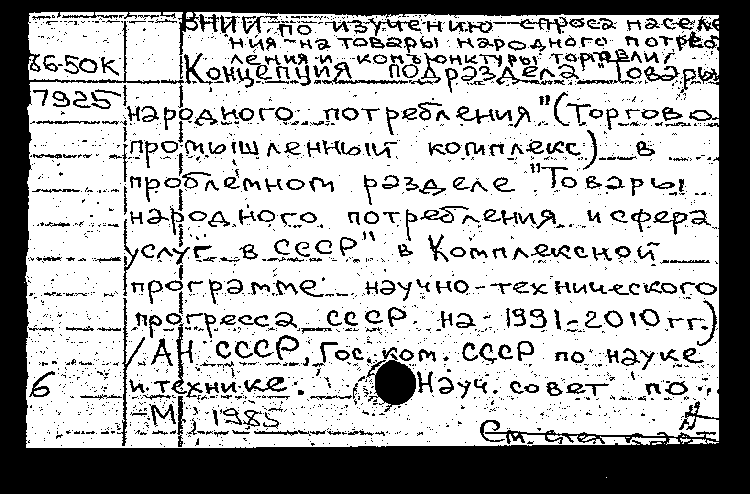 ВНИИ по изучению спроса населе
ния на товары народного потреб
ления и конъюнктуры торговли/
86-50К Концепция подраздела "Товары
7925 народного потребления" (Торгово
промышленный комплекс) в
проблемном разделе "Товары
народного потребления и сфера
услуг в СССР" в Комплексной
программе научно-технического
прогресса СССР на 1991-2010 гг.)
/АН СССР, Гос. ком. СССР по науке
6 и технике. Науч. совет по...
-М, 1985
См. след. карт